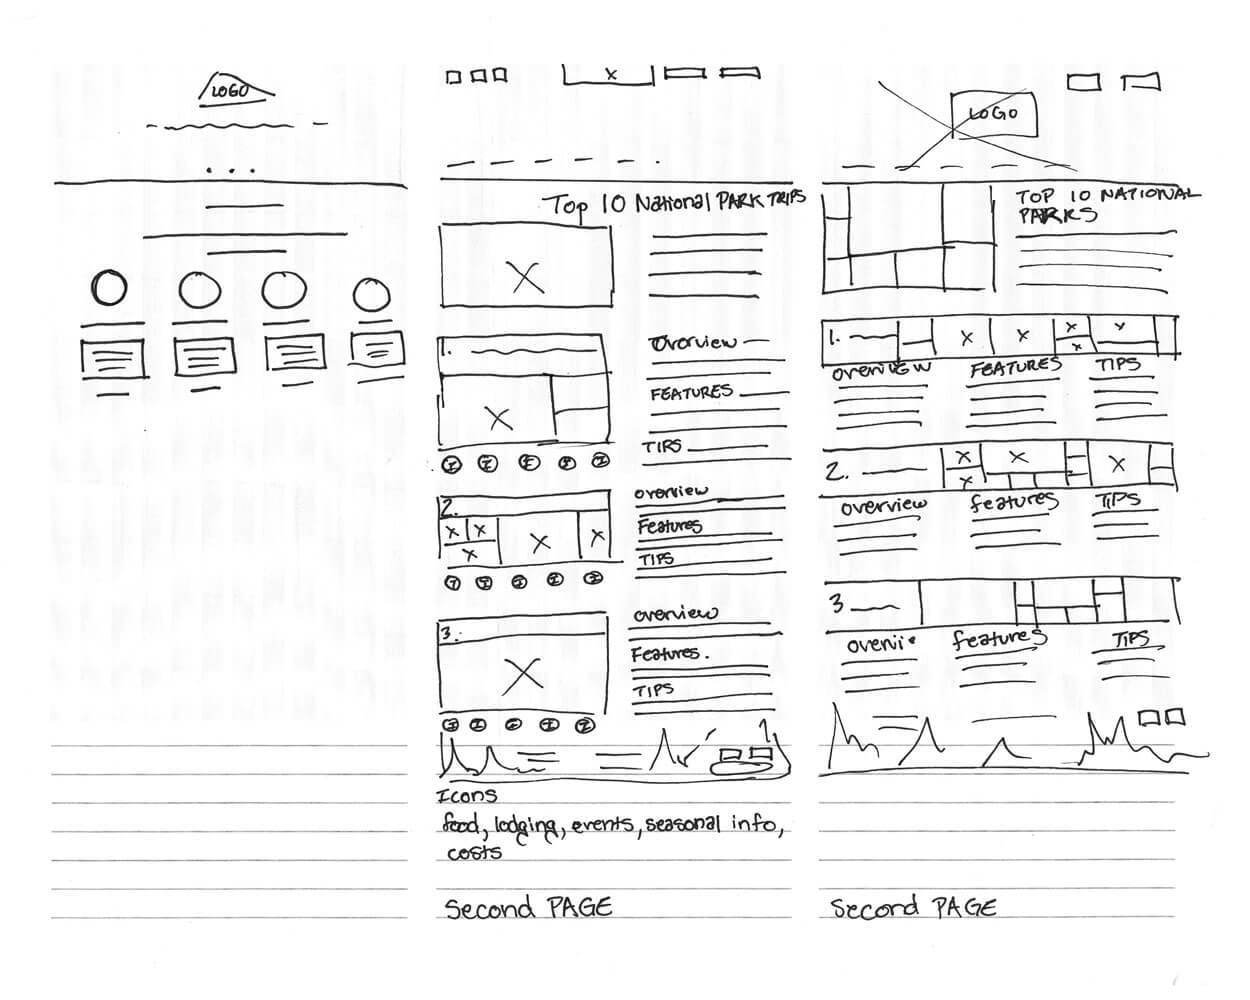 LOGO
Top 10 National PARK TRIPS
1.
Overview
FEATURES
TIPS
I I I I I
2.
overview
Features
TIPS
I I I I I
3.
overview
Features.
TIPS
I I I I I
Icons
food, lodging, events, seasonal info,
costs
Second PAGE
LOGO
TOP 10 NATIONAL
PARKS
1.
overview FEATURES TIPS
2.
overview features TIPS
3
features TIPS
Second PAGE